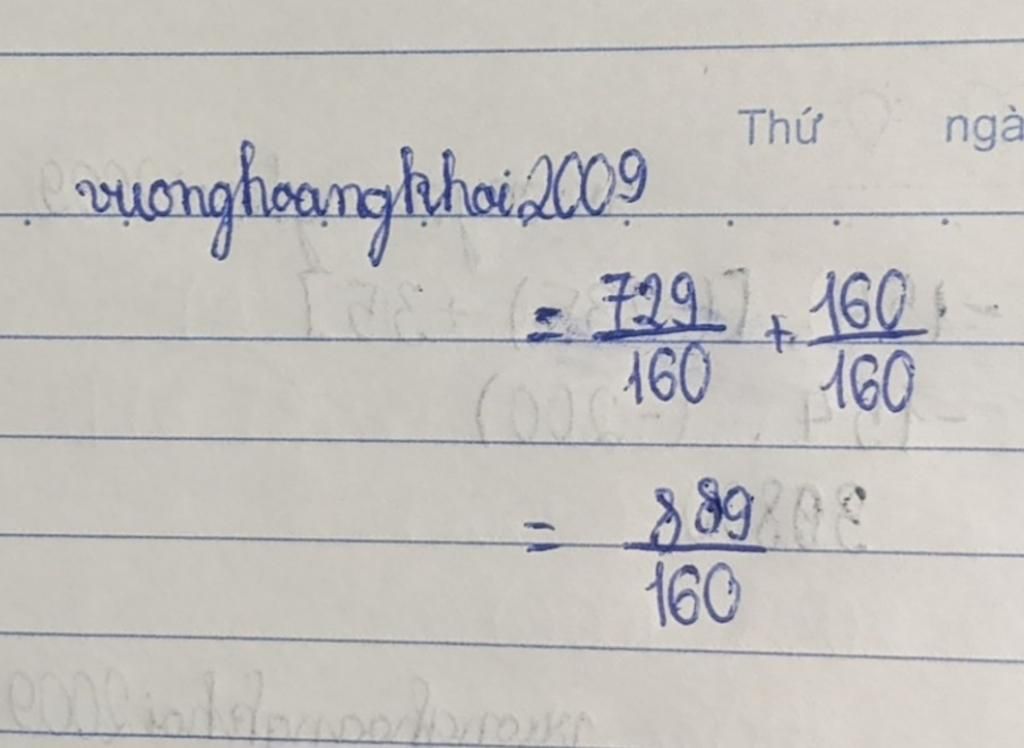 Thứ ngà
vuonghoangkhai2009
= 729/160 + 160/160
= 889/160